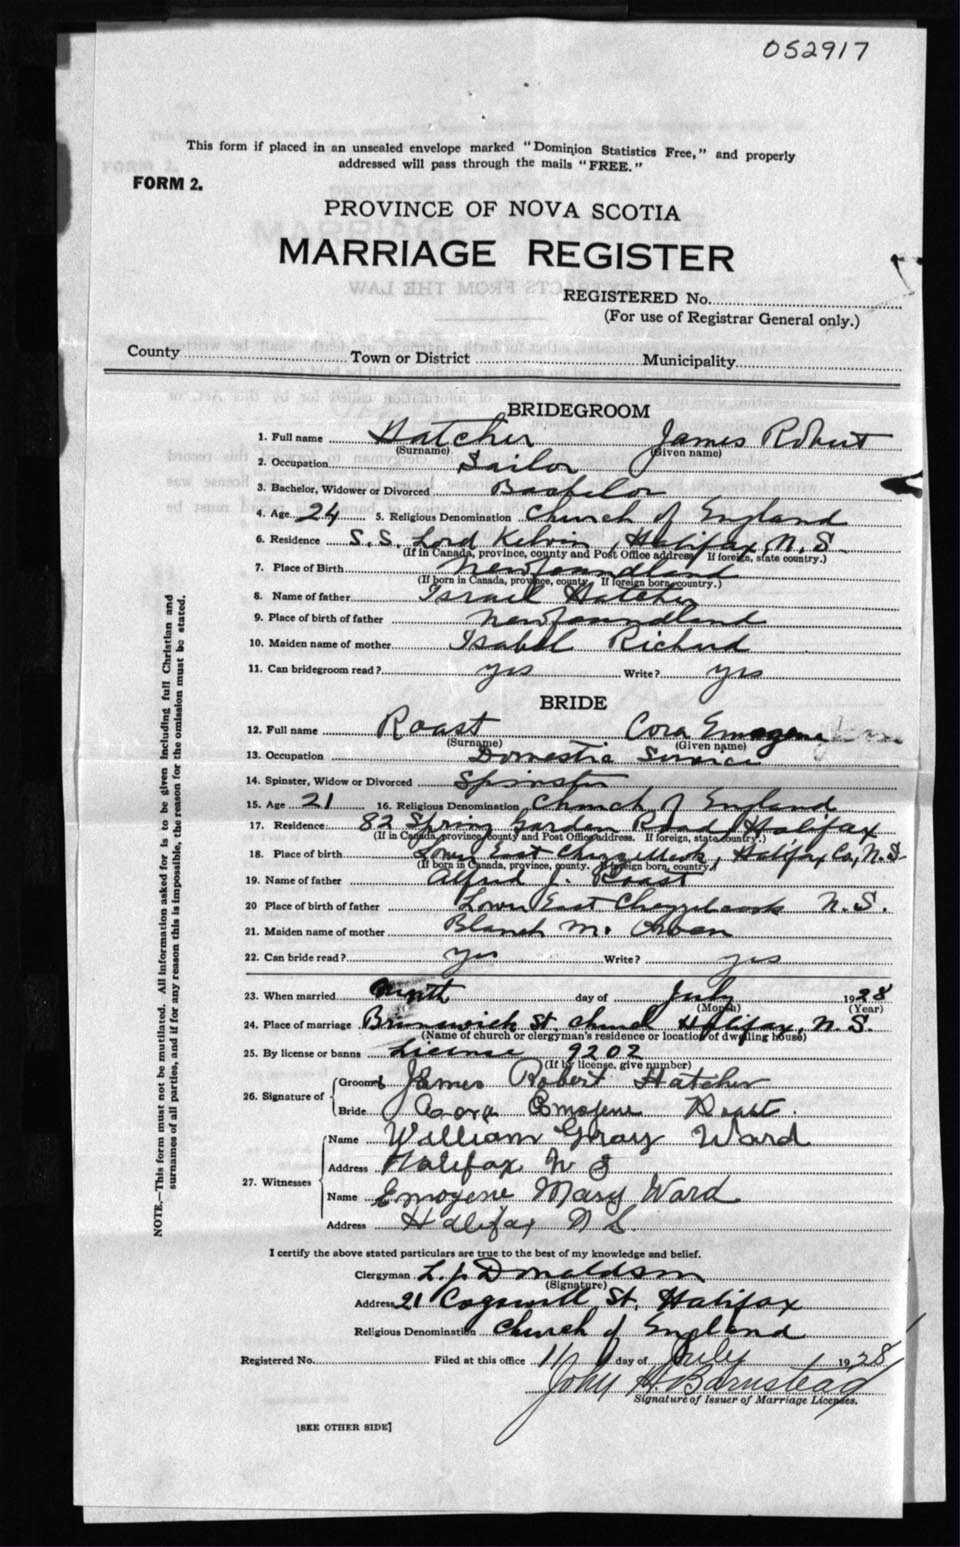 052917
This form if placed in an unsealed envelope marked "Dominion Statistics Free," and properly
addressed will pass through the mails "FREE."
FORM 2.
PROVINCE OF NOVA SCOTIA
MARRIAGE REGISTER
REGISTERED No.
(For use of Registrar General only.)
County Town or District Municipality
BRIDEGROOM
1. Full name Hatcher James Robert
(Surname) (Given name)
2. Occupation Sailor
3. Bachelor, Widower or Divorced Bachelor
4. Age 24 5. Religious Denomination Church of England
6. Residence S.S. Lord Kelvin, Halifax, N.S.
(If in Canada, province, county and Post Office address If foreign, state country.)
7. Place of Birth Newfoundland
(If born in Canada, province, county. If foreign born, country.)
8. Name of father Israel Hatcher
9. Place of birth of father Newfoundland
10. Maiden name of mother Isabel Richard
11. Can bridegroom read? yes Write? yes
BRIDE
12. Full name Roast Cora Emogene
(Surname) (Given name)
13. Occupation Domestic Service
14. Spinster, Widow or Divorced Spinster
15. Age 21 16. Religious Denomination Church of England
17. Residence: 82 Spring Garden Road Halifax
(If in Canada, province, county and Post Office address. If foreign, state country.)
18. Place of birth Lower East Chezzetcook, Halifax Co, N.S.
(If born in Canada, province, county. If foreign born, country.)
19. Name of father Alfred J. Roast
20 Place of birth of father Lower East Chezzetcook N.S.
21. Maiden name of mother Blanch M.
22. Can bride read? yes Write? yes
23. When married Ninth day of July 1928
(Month) (Year)
24. Place of marriage Brunswick St. Church Halifax, N.S.
(Name of church or clergyman's residence or location of dwelling house)
25. By license or banns License 9202
(If by license, give number)
26. Signature of Groom James Robert Hatcher
Bride Cora Emogene Roast.
27. Witnesses Name William Gray Ward
Address Halifax N S
Name Emogene Mary Ward
Address Halifax N S.
I certify the above stated particulars are true to the best of my knowledge and belief.
Clergyman L. J. Donaldson
(Signature)
Address 21 Cogswell St, Halifax
Religious Denomination Church of England
Registered No. Filed at this office 11 day of July 1928
John H Barnstead
Signature of Issuer of Marriage Licenses.
[SEE OTHER SIDE]
NOTE.—This form must not be mutilated. All information asked for is to be given including full Christian and
surnames of all parties, and if for any reason this is impossible, the reason for the omission must be stated.